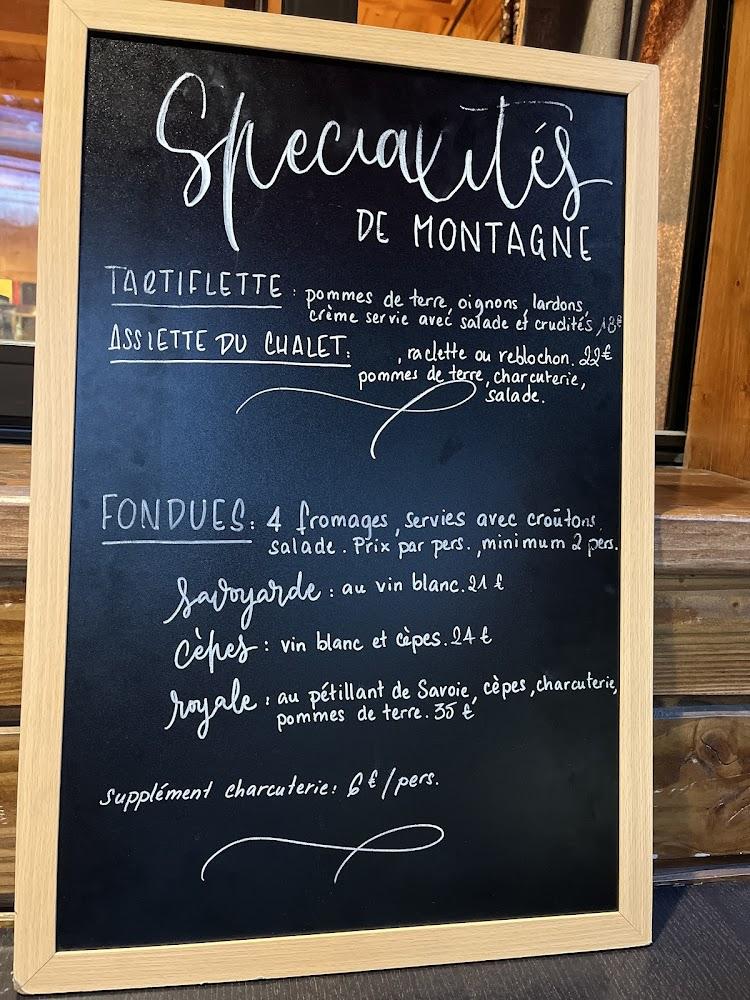 Specialités
DE MONTAGNE
TARTIFLETTE : pommes de terre, oignons, lardons,
crème servie avec salade et crudités 18€
ASSIETTE DU CHALET: , raclette ou reblochon. 22€
pommes de terre, charcuterie,
salade.
FONDUES: 4 fromages, servies avec croûtons,
salade. Prix par pers., minimum 2 pers.
savoyarde : au vin blanc. 21 €
cèpes : vin blanc et cèpes. 24 €
royale : au pétillant de Savoie, cèpes, charcuterie,
pommes de terre. 35 €
supplément charcuterie: 6€/pers.